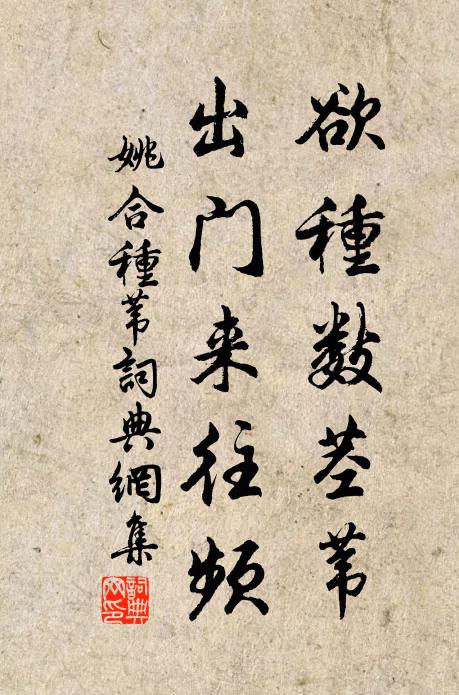 欲種數茎苇
出门来往頻
姚合種苇詞典網集
詞典
网印